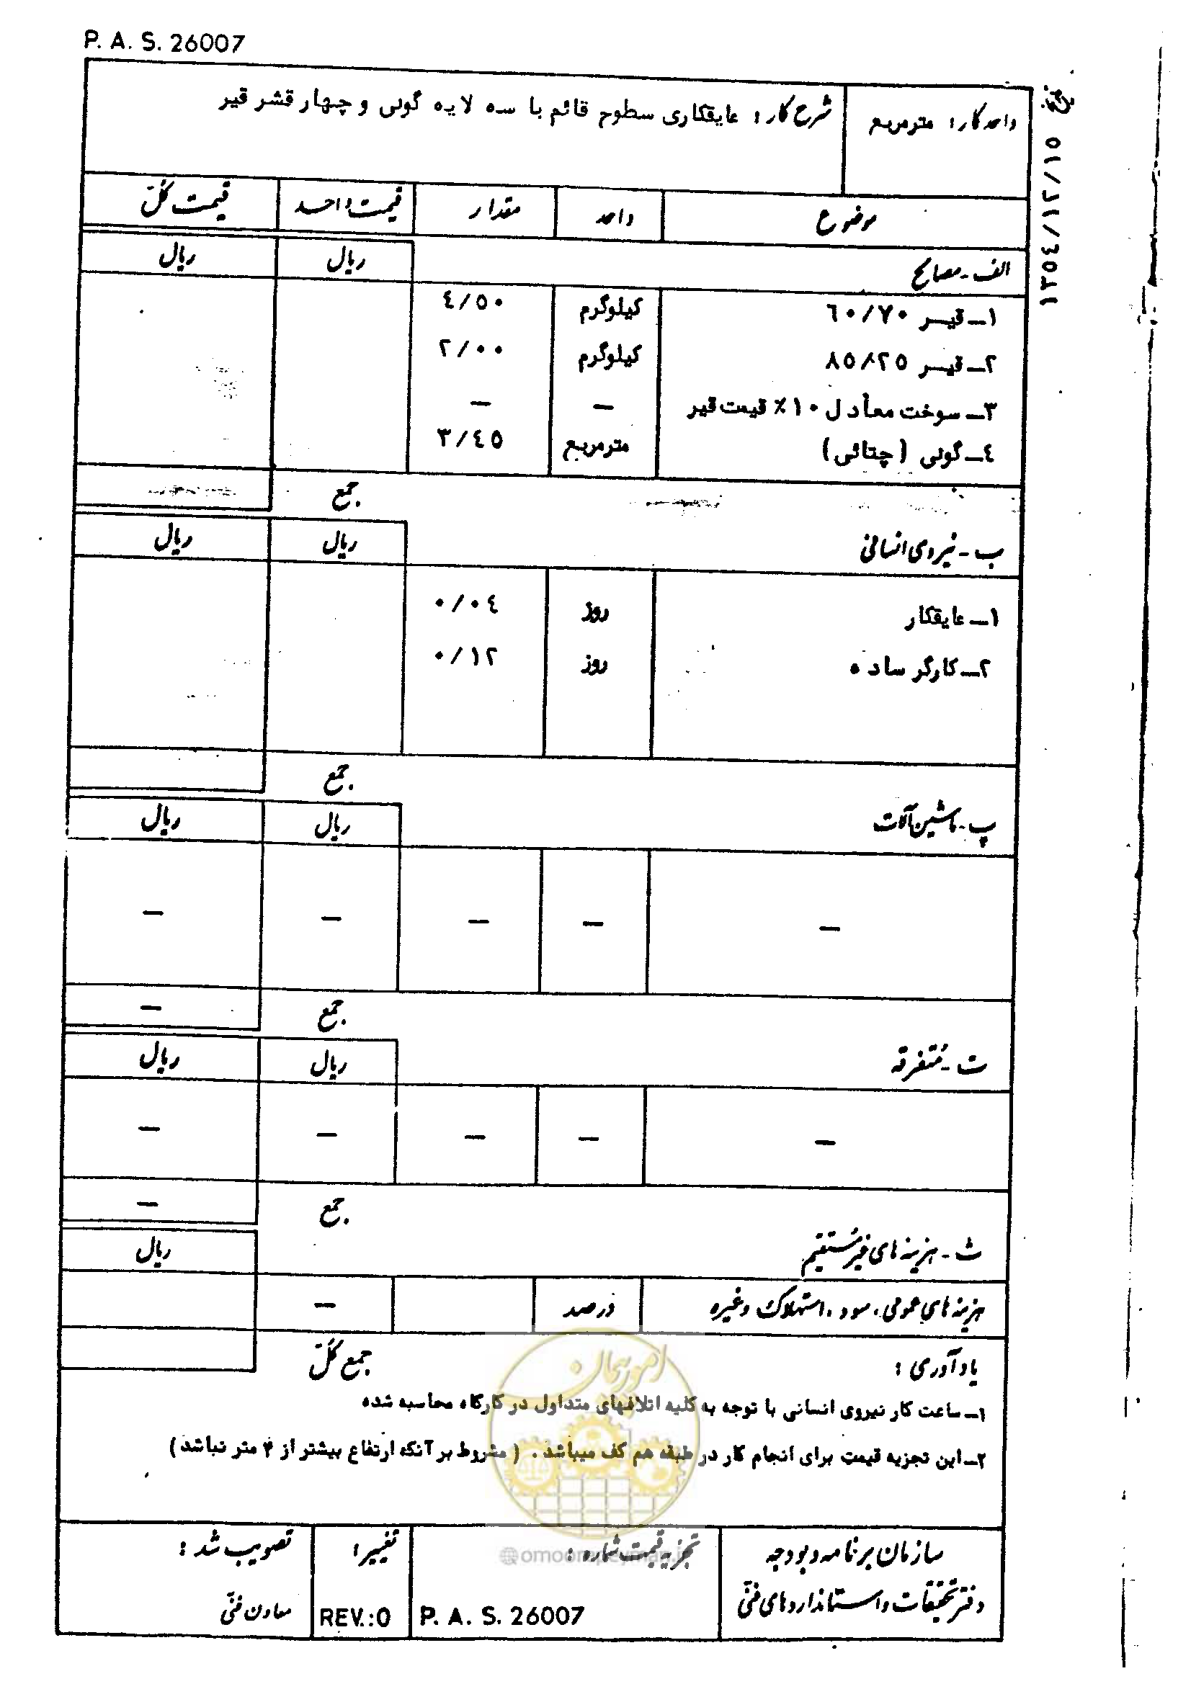 P. A. S. 26007
واحدکار: مترمربع
شرح کار: عایقکاری سطوح قائم با سه لایه گونی و چهار قشر قیر
تاریخ ١٣٥٤/١٢/١٥
موضوع واحد مقدار قیمت واحد قیمت کل
الف - مصالح ریال ریال
١ـ قیر ٦٠/٧٠ کیلوگرم ٤/٥٠
٢ـ قیر ٨٥/٢٥ کیلوگرم ٢/٠٠
٣ـ سوخت معادل ١٠٪ قیمت قیر — —
٤ـ گونی (چتائی) مترمربع ٣/٤٥
جمع
ب - نیروی انسانی ریال ریال
١ـ عایقکار روز ٠/٠٤
٢ـ کارگر ساده روز ٠/١٢
جمع
پ - ماشین آلات ریال ریال
— — — — —
جمع —
ت - متفرقه ریال ریال
— — — — —
جمع —
ث - هزینه های غیر مستقیم ریال
هزینه های عمومی، سود، استهلاک وغیره درصد —
جمع کل
یادآوری:
١ـ ساعت کار نیروی انسانی با توجه به کلیه اتلافهای متداول در کارگاه محاسبه شده
٢ـ این تجزیه قیمت برای انجام کار در طبقه هم کف میباشد. (مشروط بر آنکه ارتفاع بیشتر از ۴ متر نباشد)
امور پیمان
سازمان برنامه و بودجه
دفتر تحقیقات و استانداردهای فنی
تجزیه قیمت شماره:
P. A. S. 26007
تغییر:
REV.:0
تصویب شد:
معاون فنی